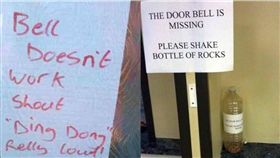 Bell
Doesn't
work
Shout
"Ding Dong"
Relly Loud!
THE DOOR BELL IS
MISSING
PLEASE SHAKE
BOTTLE OF ROCKS